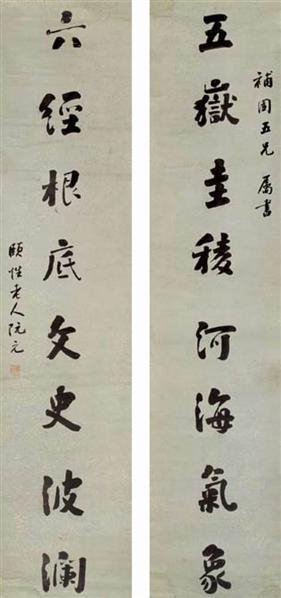 補周五兄屬書
五嶽圭稜河海氣象
六經根底文史波瀾
頤性老人阮元